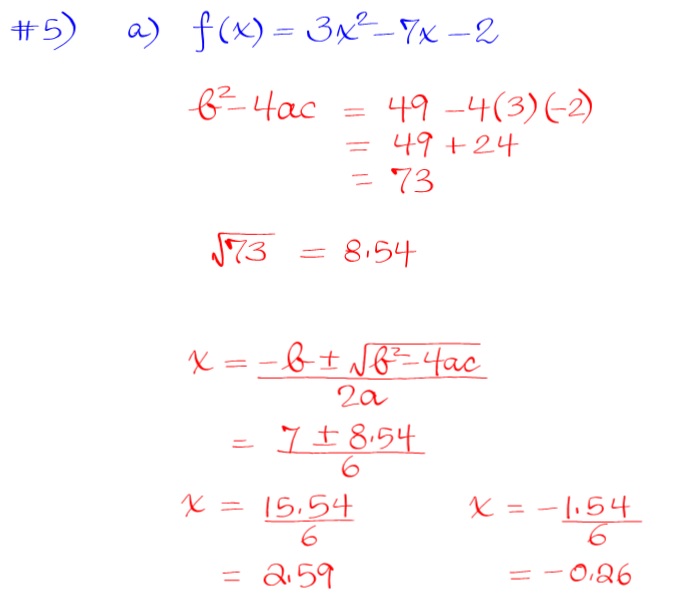 #5) a) f(x) = 3x² - 7x - 2
b² - 4ac = 49 - 4(3)(-2)
= 49 + 24
= 73
√73 = 8.54
x = -b ± √b² - 4ac / 2a
= 7 ± 8.54 / 6
x = 15.54 / 6 x = -1.54 / 6
= 2.59 = -0.26